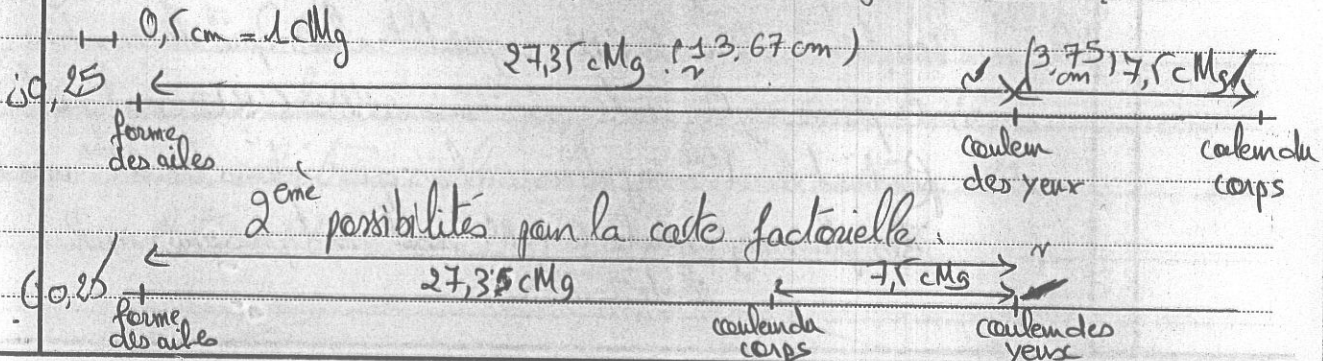 0,5 cm = 1 cMg
27,35 cMg (≃ 13,67 cm) (3,75 cm) 7,5 cMg
0,25
forme des ailes couleur des yeux couleur du corps
2ème possibilités pour la carte factorielle.
27,35 cMg 7,5 cMg
0,25
forme des ailes couleur du corps couleur des yeux